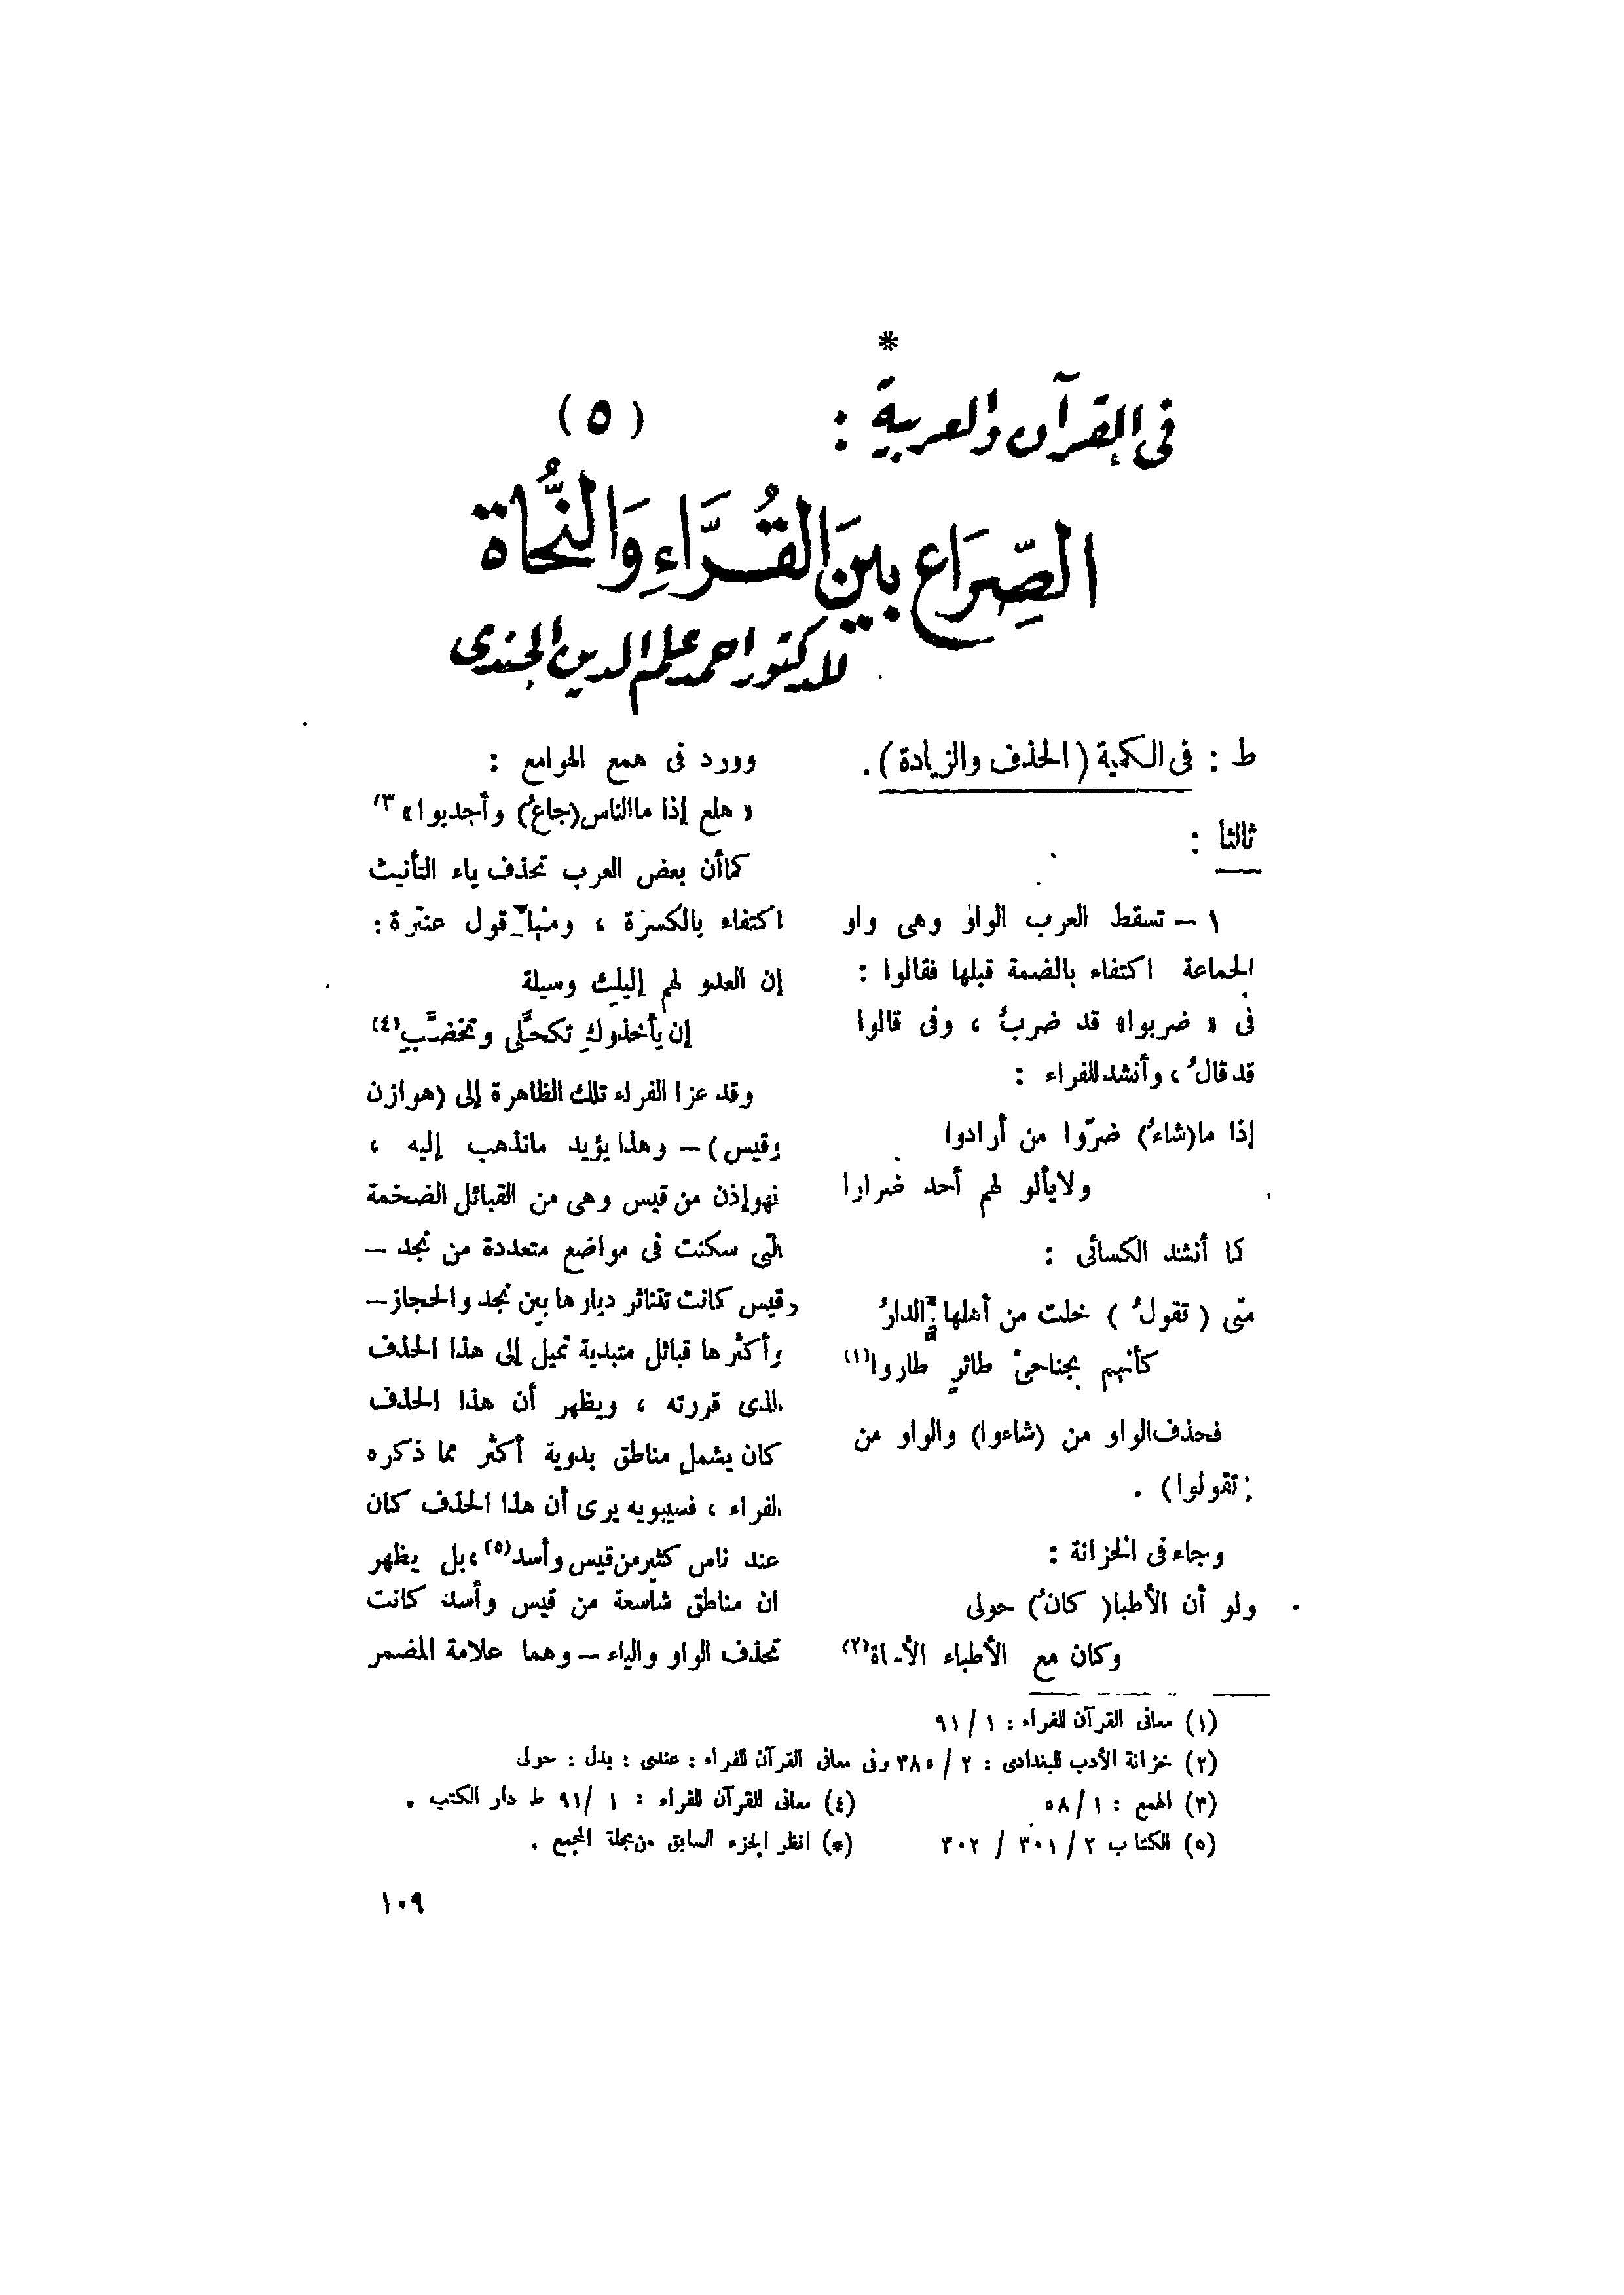 *
فى القرآن والعربية :
(٥)
الصِّرَاع بينَ القُرَّاءِ وَالنُّحَاة
للدكتور احمد علم الدين الجندى
ط : فى الكمية (الحذف والزيادة) .
ثالثا :
١ – تسقط العرب الواو وهى واو
الجماعة اكتفاء بالضمة قبلها فقالوا :
فى « ضربوا» قد ضربُ ، وفى قالوا
قد قالُ ، وأنشد للفراء :
إذا ما(شاءُ) ضرّوا من أرادوا
ولا يألو لهم أحد ضرارا
كما أنشد الكسائى :
متى ( تقولُ ) خلت من أهلها الدارُ
كأنهم بجناحىْ طائرٍ طاروا(١)
فحذف الواو من (شاءوا) والواو من
(تقولوا) .
وجاء فى الخزانة :
ولو أن الأطبا( كانُ) حولى
وكان مع الأطباء (٢)
وورد فى همع الهوامع :
« هلع إذا ما الناس(جاعُ) وأجدبوا» ٣)
كما أن بعض العرب تحذف ياء التأنيث
اكتفاء بالكسرة ، ومنها قول عنترة :
إن العدو لهم إليكِ وسيلة
إن يأخذوكِ تكحَّلى وتخضَّبِ(٤)
وقد عزا الفراء تلك الظاهرة إلى (هوازن
وقيس) – وهذا يؤيد مانذهب إليه ،
فهو إذن من قيس وهى من القبائل الضخمة
التى سكنت فى مواضع متعددة من نجد –
وقيس كانت تتناثر ديارها بين نجد والحجاز –
وأكثرها قبائل متبدية تميل إلى هذا الحذف
الذى قررته ، ويظهر أن هذا الحذف
كان يشمل مناطق بدوية أكثر مما ذكره
الفراء ، فسيبويه يرى أن هذا الحذف كان
عند ناس كثير من قيس وأسد(٥) ، بل يظهر
ان مناطق شاسعة من قيس وأسد كانت
تحذف الواو والياء – وهما علامة المضمر
(١) معانى القرآن للفراء : ١ / ٩١
(٢) خزانة الأدب للبغدادى : ٢ / ٣٨٥ وفى معانى القرآن للفراء : عندى : بدل : حولى
(٣) الهمع : ١ / ٥٨
(٤) معانى القرآن للفراء : ١ / ٩١ ط دار الكتب .
(٥) الكتاب ٢ / ٣٠١ / ٣٠٢
(*) انظر الجزء السابق من مجلة المجمع .
١٠٩